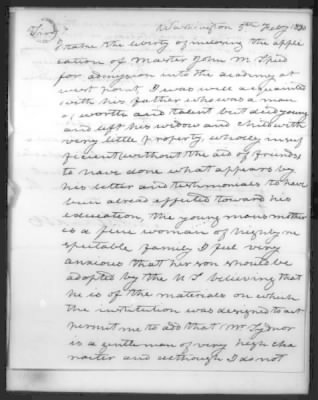 Washington 5th Feby 1830
Sir,
I take the liberty of inclosing the appli
cation of Master John M. Speed
for admission into the academy at
west point. I was well acquainted
with his father who was a man
of worth and talent but died young
and left his widow and child with
very little property, wholly insuf
ficient (without the aid of friends)
to have done what appears by
his letter and testimonials to have
been alread affected toward his
education, the young mans mother
is a fine woman of highly re
spectable family I feel very
anxious that her son should be
adopted by the U S believing that
he is of the materials on which
the institution was designed to act
permit me to add that Mr Sydnor
is a gentleman of very high cha
racter and although I do not